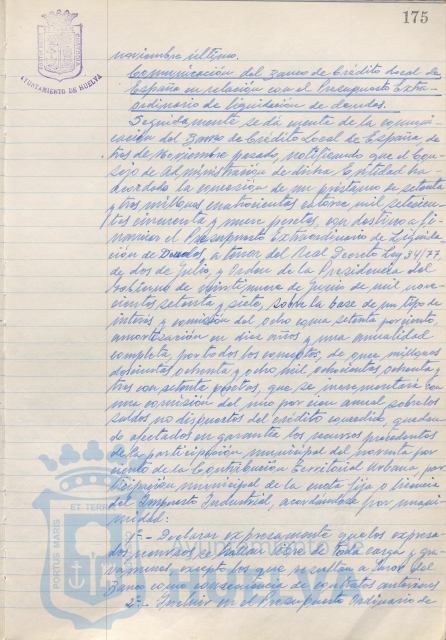 175
AYUNTAMIENTO DE HUELVA
noviembre último.
Comunicación del Banco de Crédito Local de
España en relación con el Presupuesto Extra-
ordinario de liquidación de deudas.
Seguidamente se dá cuenta de la comuni-
cación del Banco de Crédito Local de España de
tres de Noviembre pasado, notificando que el Con
sejo de Administración de dicha Entidad ha
acordado la concesión de un préstamo de setenta
y tres millones cuatrocientas catorce mil setecien-
tas cincuenta y nueve pesetas, con destino a fi-
nanciar el Presupuesto Extraordinario de Liquida
ción de Deudas, a tenor del Real Decreto Ley 34/77,
de dos de Julio, y Orden de la Presidencia del
Gobierno de veintinueve de Junio de mil nove-
cientos setenta y siete, sobre la base de un tipo de
interés y comisión del ocho coma setenta por ciento
amortización en diez años y una anualidad
completa, por todos los conceptos, de once millones
doscientas ochenta y ocho mil ochocientas ochenta y
tres con setenta pesetas, que se incrementaría con
una comisión del uno por cien anual sobre los
saldos no dispuestos del crédito concedido, quedan
do afectados en garantía los recursos procedentes
de la participación municipal del noventa por
ciento de la Contribución Territorial Urbana, par
ticipación municipal de la cuota fija o licencia
del Impuesto Industrial, acordándose por unani
midad:
1º.- Declarar expresamente que los expresa
dos recursos se hallan libre de toda carga y gra
vámenes, excepto los que resultan a favor del
Banco como consecuencia de contratos anteriores
2º.- Incluir en el Presupuesto Ordinario de
PORTUS MARIS ET TERRAE